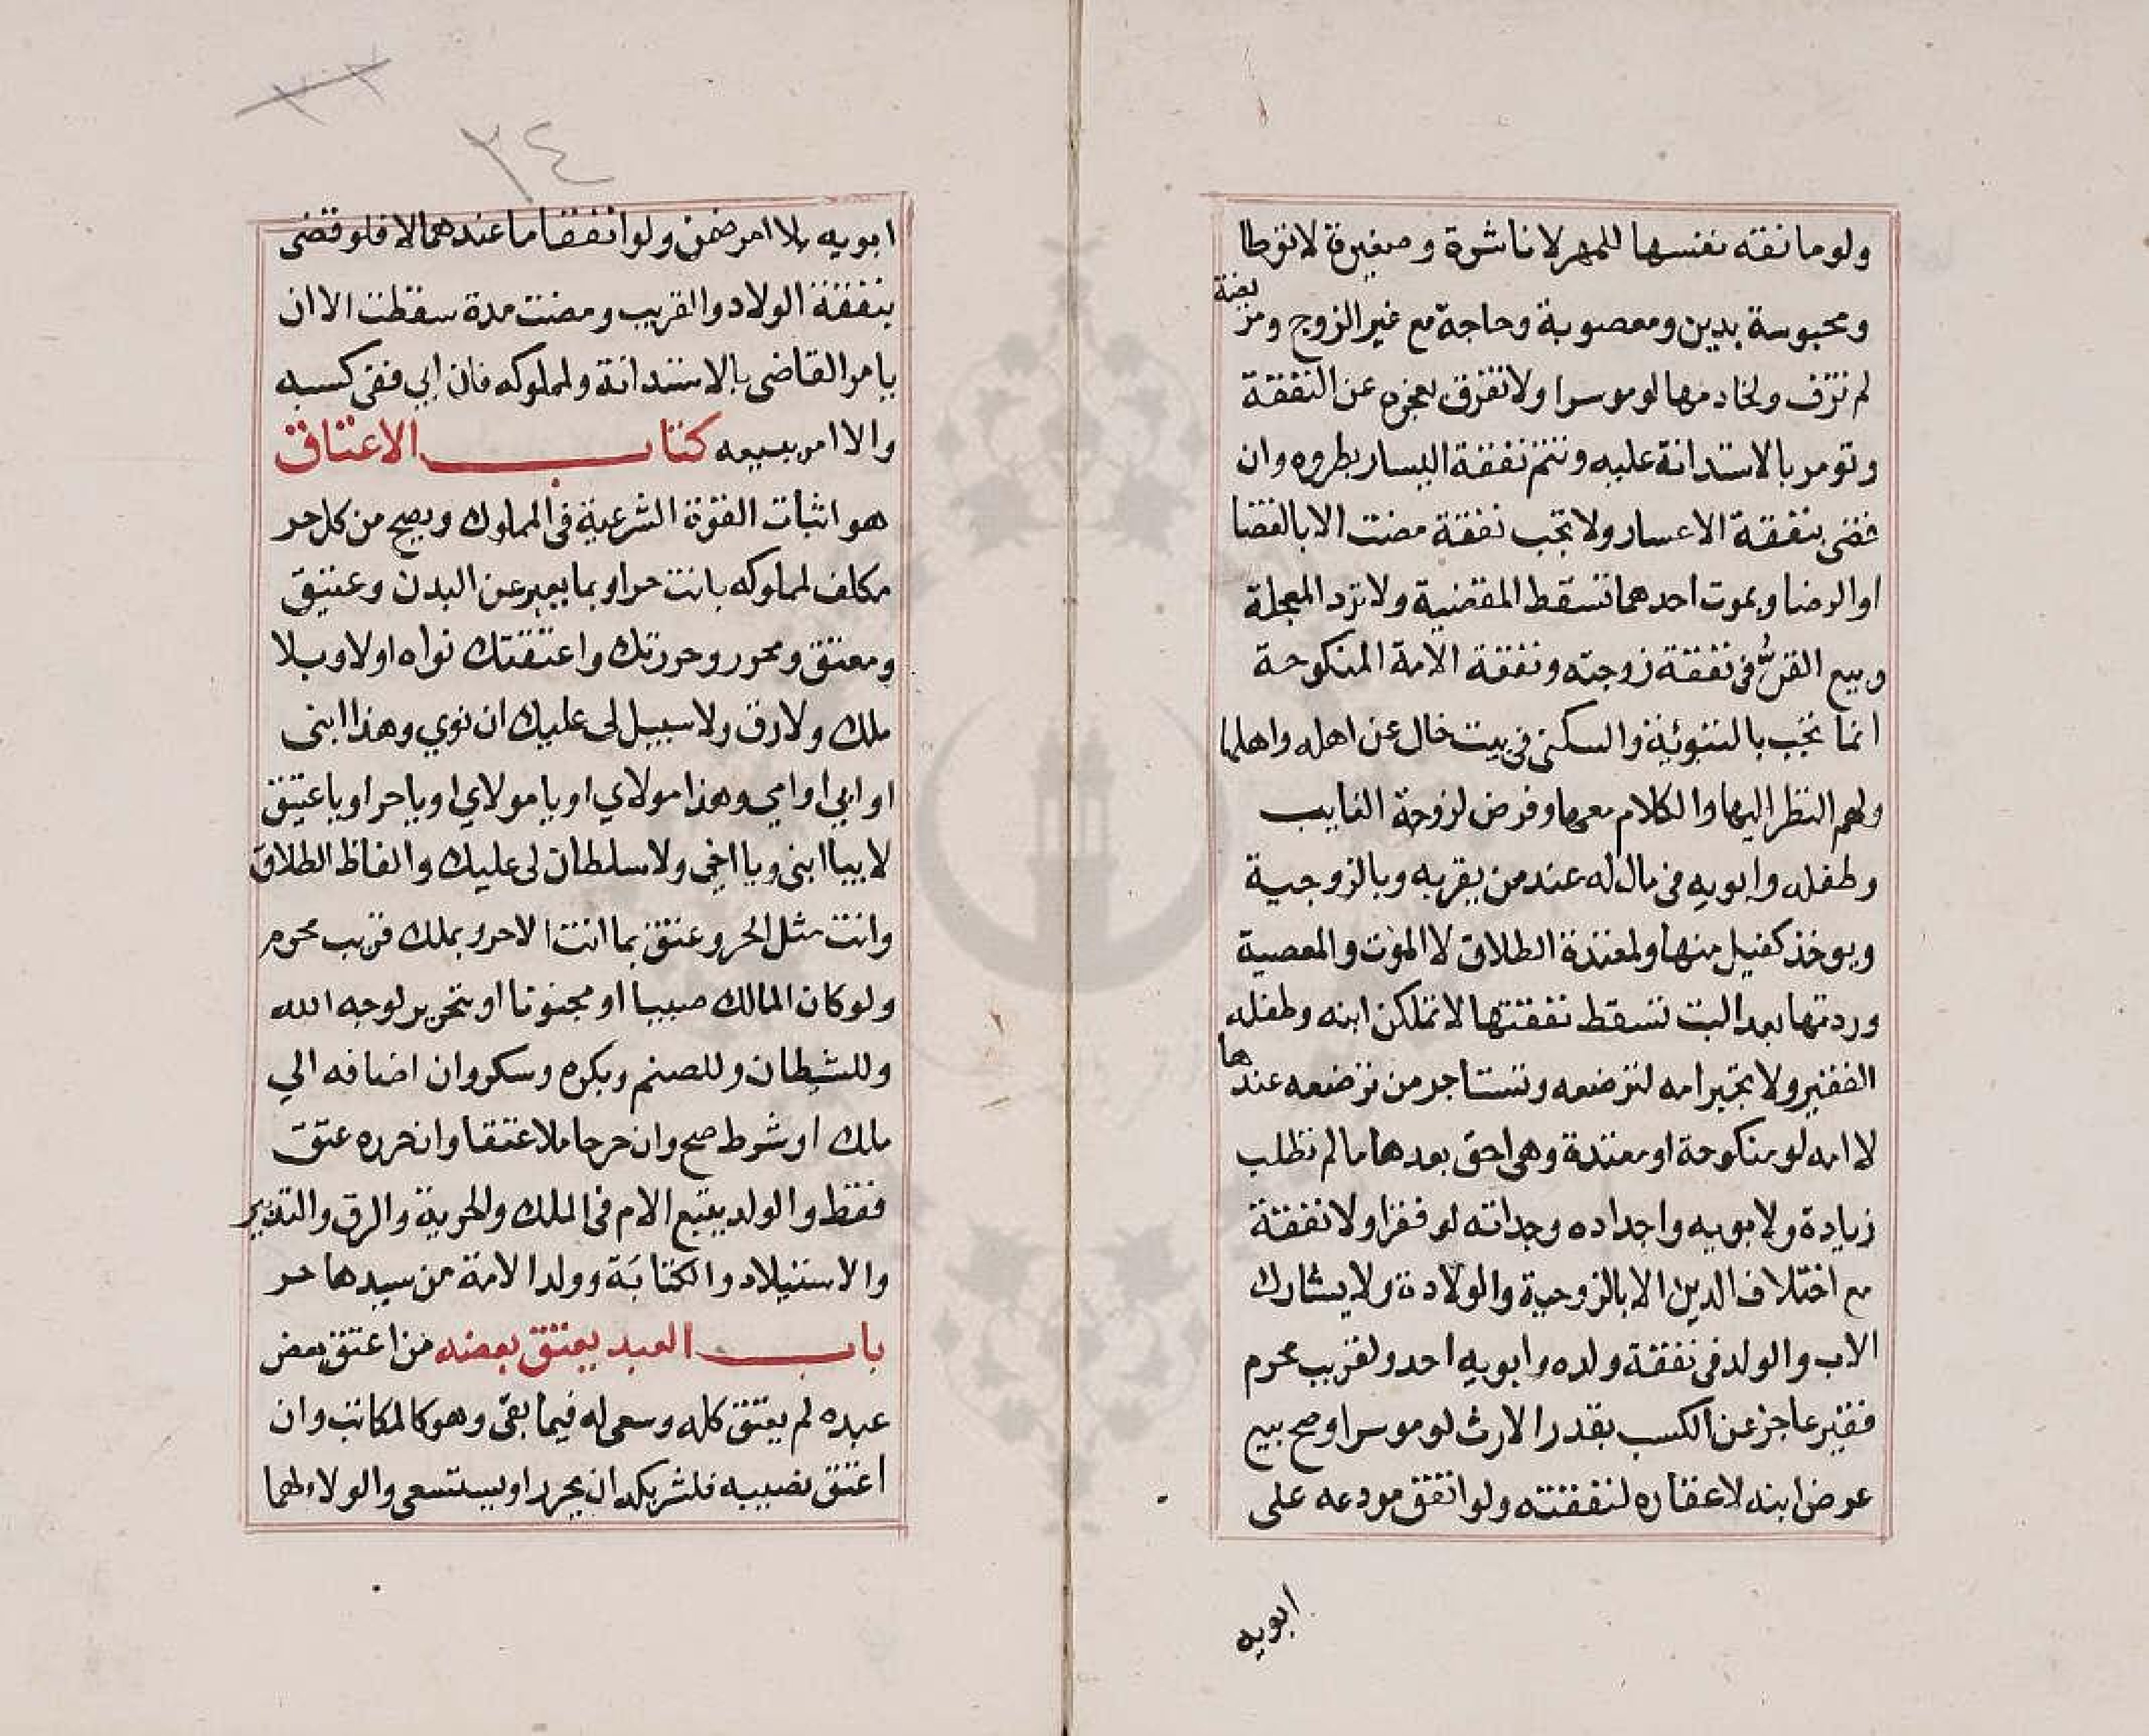 ولو مانعة نفسها للمهر لا ناشزة وصغيرة لا توطا
ومحبوسة بدين ومغصوبة وحاجة مع غير الزوج ومريضة
لم تزف ولخادمها لو موسرا ولا تفرق بعجزه عن النفقة
وتومر بالاستدانة عليه وتتم نفقة اليسار بطروه وان
قضى بنفقة الاعسار ولا تجب نفقة مضت الا بالقضا
او الرضا وبموت احدهما تسقط المقضية ولا ترد المعجلة
وبيع القن في نفقة زوجته ونفقة الامة المنكوحة
انما تجب بالتبوئة والسكنى في بيت خال عن اهله واهلها
ولهم النظر اليها والكلام معها وفرض لزوجة الغايب
وطفله وابويه في مال له عند من يقر به وبالزوجية
ويوخذ كفيل منها ولمعتدة الطلاق لا الموت والمعصية
وردتها بعد البت تسقط نفقتها لا تمكن ابنه وطفله
الفقير ولا تجبر امه لترضعه وتستاجر من ترضعه عندها
لا امه لو منكوحة او معتدة وهي احق بعدها ما لم تطلب
زيادة ولابويه واجداده وجداته لو فقرا ولا نفقة
مع اختلاف الدين الا بالزوجية والولادة ولا يشارك
الاب والولد في نفقة ولده وابويه احد ولقريب محرم
فقير عاجز عن الكسب بقدر الارث لو موسرا وصح بيع
عرض ابنه لا عقاره لنفقته ولو انفق مودعه على
ابويه
٣٣
٣٤
ابويه بلا امر ضمن ولو انفقا ما عندهما لا فلو قضى
بنفقة الولاد والقريب ومضت مدة سقطت الا ان
يامر القاضى بالاستدانة ولمملوكه فان ابي ففى كسبه
والا امر ببيعه كتاب الاعتاق
هو اثبات القوة الشرعية فى المملوك ويصح من كل حر
مكلف لمملوكه بانت حر او بما يعبر عن البدن وعتيق
ومعتق ومحرر وحررتك واعتقتك نواه او لا وبلا
ملك ولا رق ولا سبيل لى عليك ان نوي وهذا ابنى
او ابي او امي وهذا مولاي او يا مولاي او يا حر او يا عتيق
لا بيا ابنى ويا اخي ولا سلطان لى عليك والفاظ الطلاق
وانت مثل الحر وعتق بما انت الا حر وبملك قريب محرم
ولو كان المالك صبيا او مجنونا او بتحرير لوجه الله
وللشيطان وللصنم وبكره وسكر وان اضافه الي
ملك او شرط صح وان حرر حاملا عتقا وان حرره عتق
فقط والولد يتبع الام فى الملك والحرية والرق والتدبير
والاستيلاد والكتابة وولد الامة من سيدها حر
باب العبد يعتق بعضه من اعتق بعض
عبده لم يعتق كله وسعى له فيما بقى وهو كالمكاتب وان
اعتق نصيبه فلشريكه ان يحرر او يستسعى والولا لهما